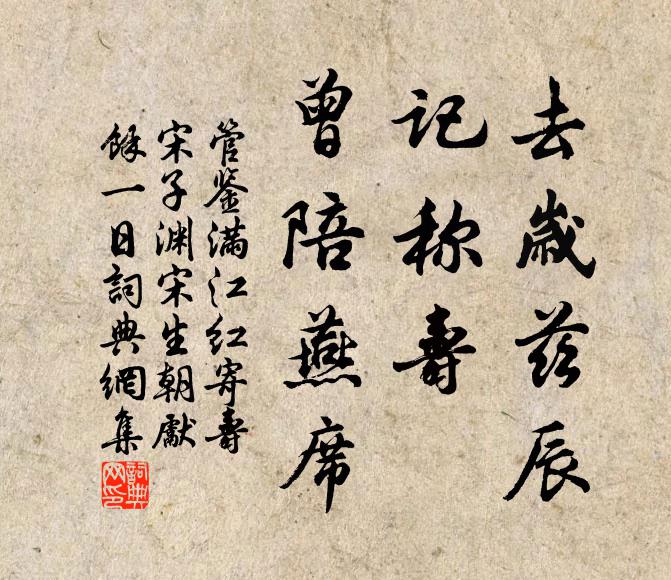 去歲茲辰
記称壽
曾陪燕席
管鉴滿江红寄壽
宋子渊宋生朝獻
餘一日詞典網集
詞典
网印